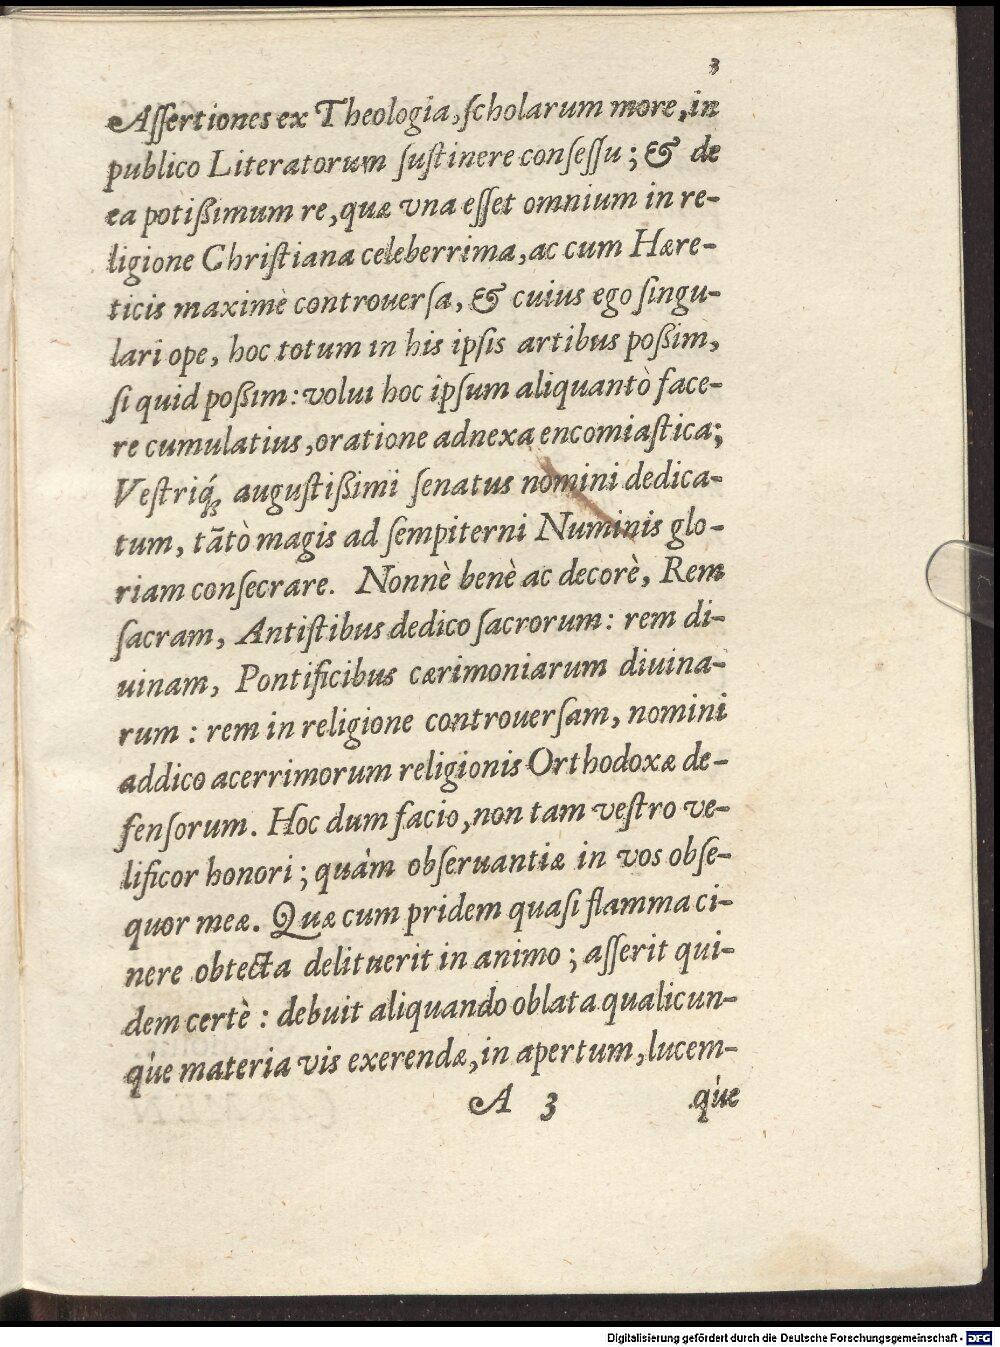 3
Aſſertiones ex Theologia, ſcholarum more, in
publico Literatorum ſuſtinere conſeſſu; & de
ea potißimum re, quæ vna eſſet omnium in re-
ligione Chriſtiana celeberrima, ac cum Hære-
ticis maximè controuerſa, & cuius ego ſingu-
lari ope, hoc totum in his ipſis artibus poßim,
ſi quid poßim: volui hoc ipſum aliquantò face-
re cumulatius, oratione adnexa encomiaſtica;
Veſtriq́; auguſtißimi ſenatus nomini dedica-
tum, tãtò magis ad ſempiterni Numinis glo-
riam conſecrare. Nonnè benè ac decorè, Rem
ſacram, Antiſtibus dedico ſacrorum: rem di-
uinam, Pontificibus cærimoniarum diuina-
rum: rem in religione controuerſam, nomini
addico acerrimorum religionis Orthodoxæ de-
fenſorum. Hoc dum facio, non tam veſtro ve-
lificor honori; quàm obſeruantiæ in vos obſe-
quor meæ. Quæ cum pridem quaſi flamma ci-
nere obtecta delituerit in animo; aſſerit qui-
dem certè: debuit aliquando oblata qualicun-
q́ue materia vis exerendæ, in apertum, lucem-
A 3 q́ue
Digitalisierung gefördert durch die Deutsche Forschungsgemeinschaft - DFG